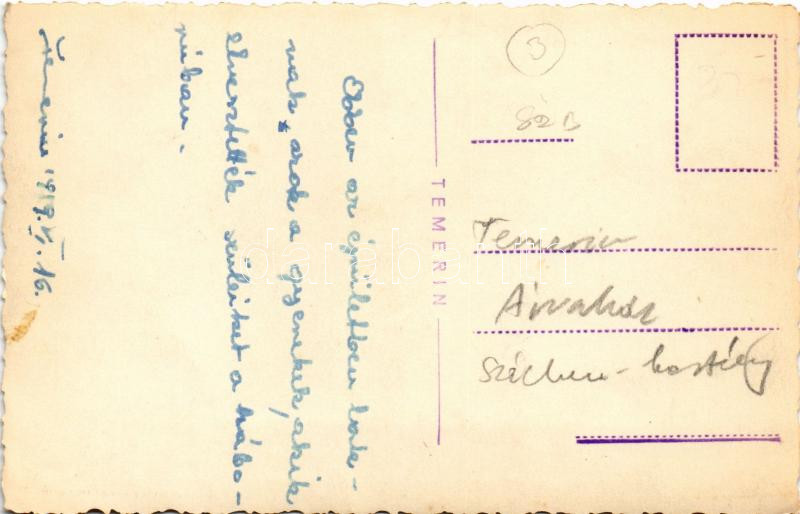 Ebben az épületben lak-
nak azok a gyerekek, akik
elvesztették szüleiket a hábo-
rúban.
Temerin 1949. VI. 16.
TEMERIN
3
Temerin
Árvaház
Széchen-kastély
darabanth